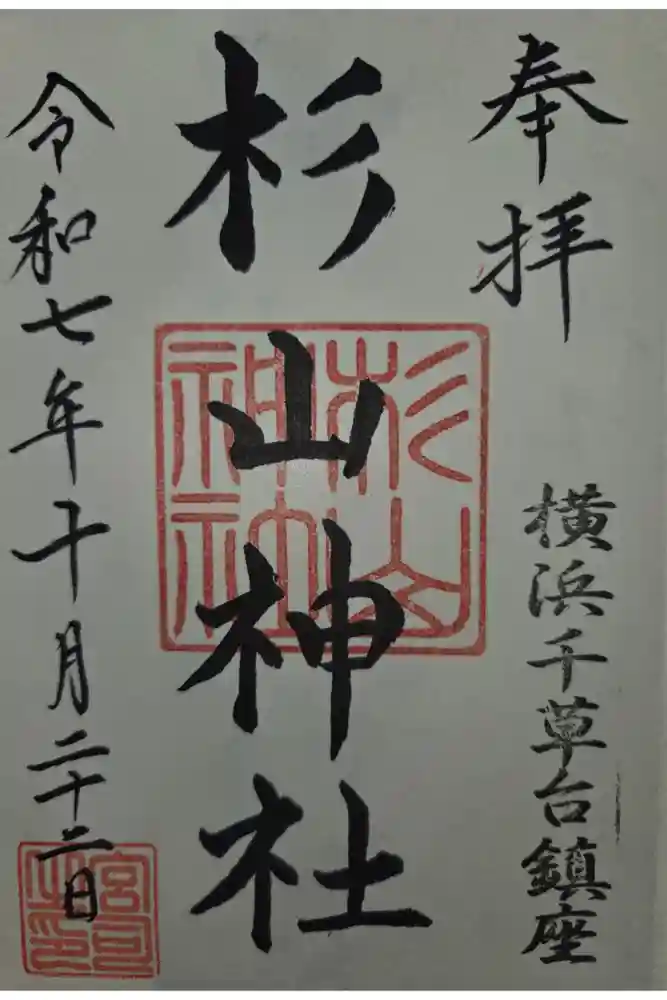 奉拝
横浜千草台鎮座
杉山神社
杉山神社
令和七年十月二十二日
宮司之印